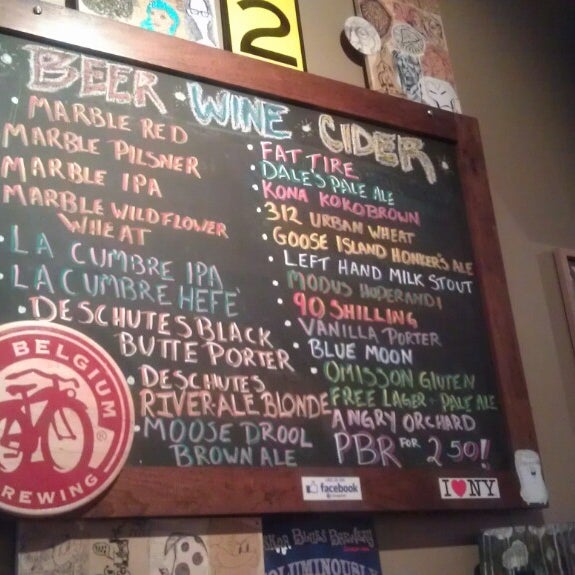 2
BEER · WINE · CIDER
MARBLE RED
MARBLE PILSNER
MARBLE IPA
MARBLE WILDFLOWER
WHEAT
· LA CUMBRE IPA
LA CUMBRE HEFE'
· DESCHUTES BLACK
BUTTE PORTER
· DESCHUTES
RIVER-ALE BLONDE
· MOOSE DROOL
BROWN ALE
· FAT TIRE
· DALE'S PALE ALE
· KONA KOKOBROWN
· 312 URBAN WHEAT
· GOOSE ISLAND HONKER'S ALE
· LEFT HAND MILK STOUT
· MODUS HOPERANDI
· 90 SHILLING
· VANILLA PORTER
· BLUE MOON
· OMISSON GLUTEN
FREE LAGER + PALE ALE
ANGRY ORCHARD
PBR FOR 2 50!!
BELGIUM
BREWING
®
facebook
I ♥ NY